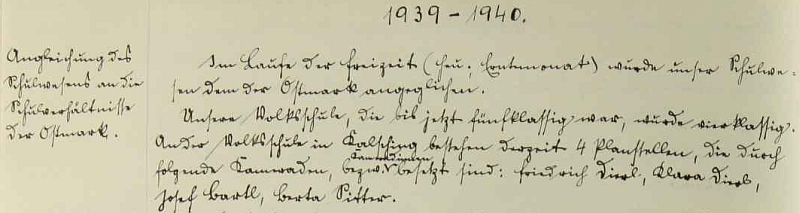 1939 – 1940.
Angleichung des
Schulwesens an die
Schulverhältnisse
der Ostmark.
Im Laufe der Freizeit (Heu-, Erntemonat) wurde unser Schulwe-
sen dem der Ostmark angeglichen.
Unsere Volksschule, die bis jetzt fünfklassig war, wurde vierklassig.
An der Volksschule in Kalsching bestehen derzeit 4 Planstellen, die durch
folgende Kameraden, bezw. Kameradinnen besetzt sind: Friedrich Dierl, Klara Dierl,
Josef Bartl, Berta Pitter.